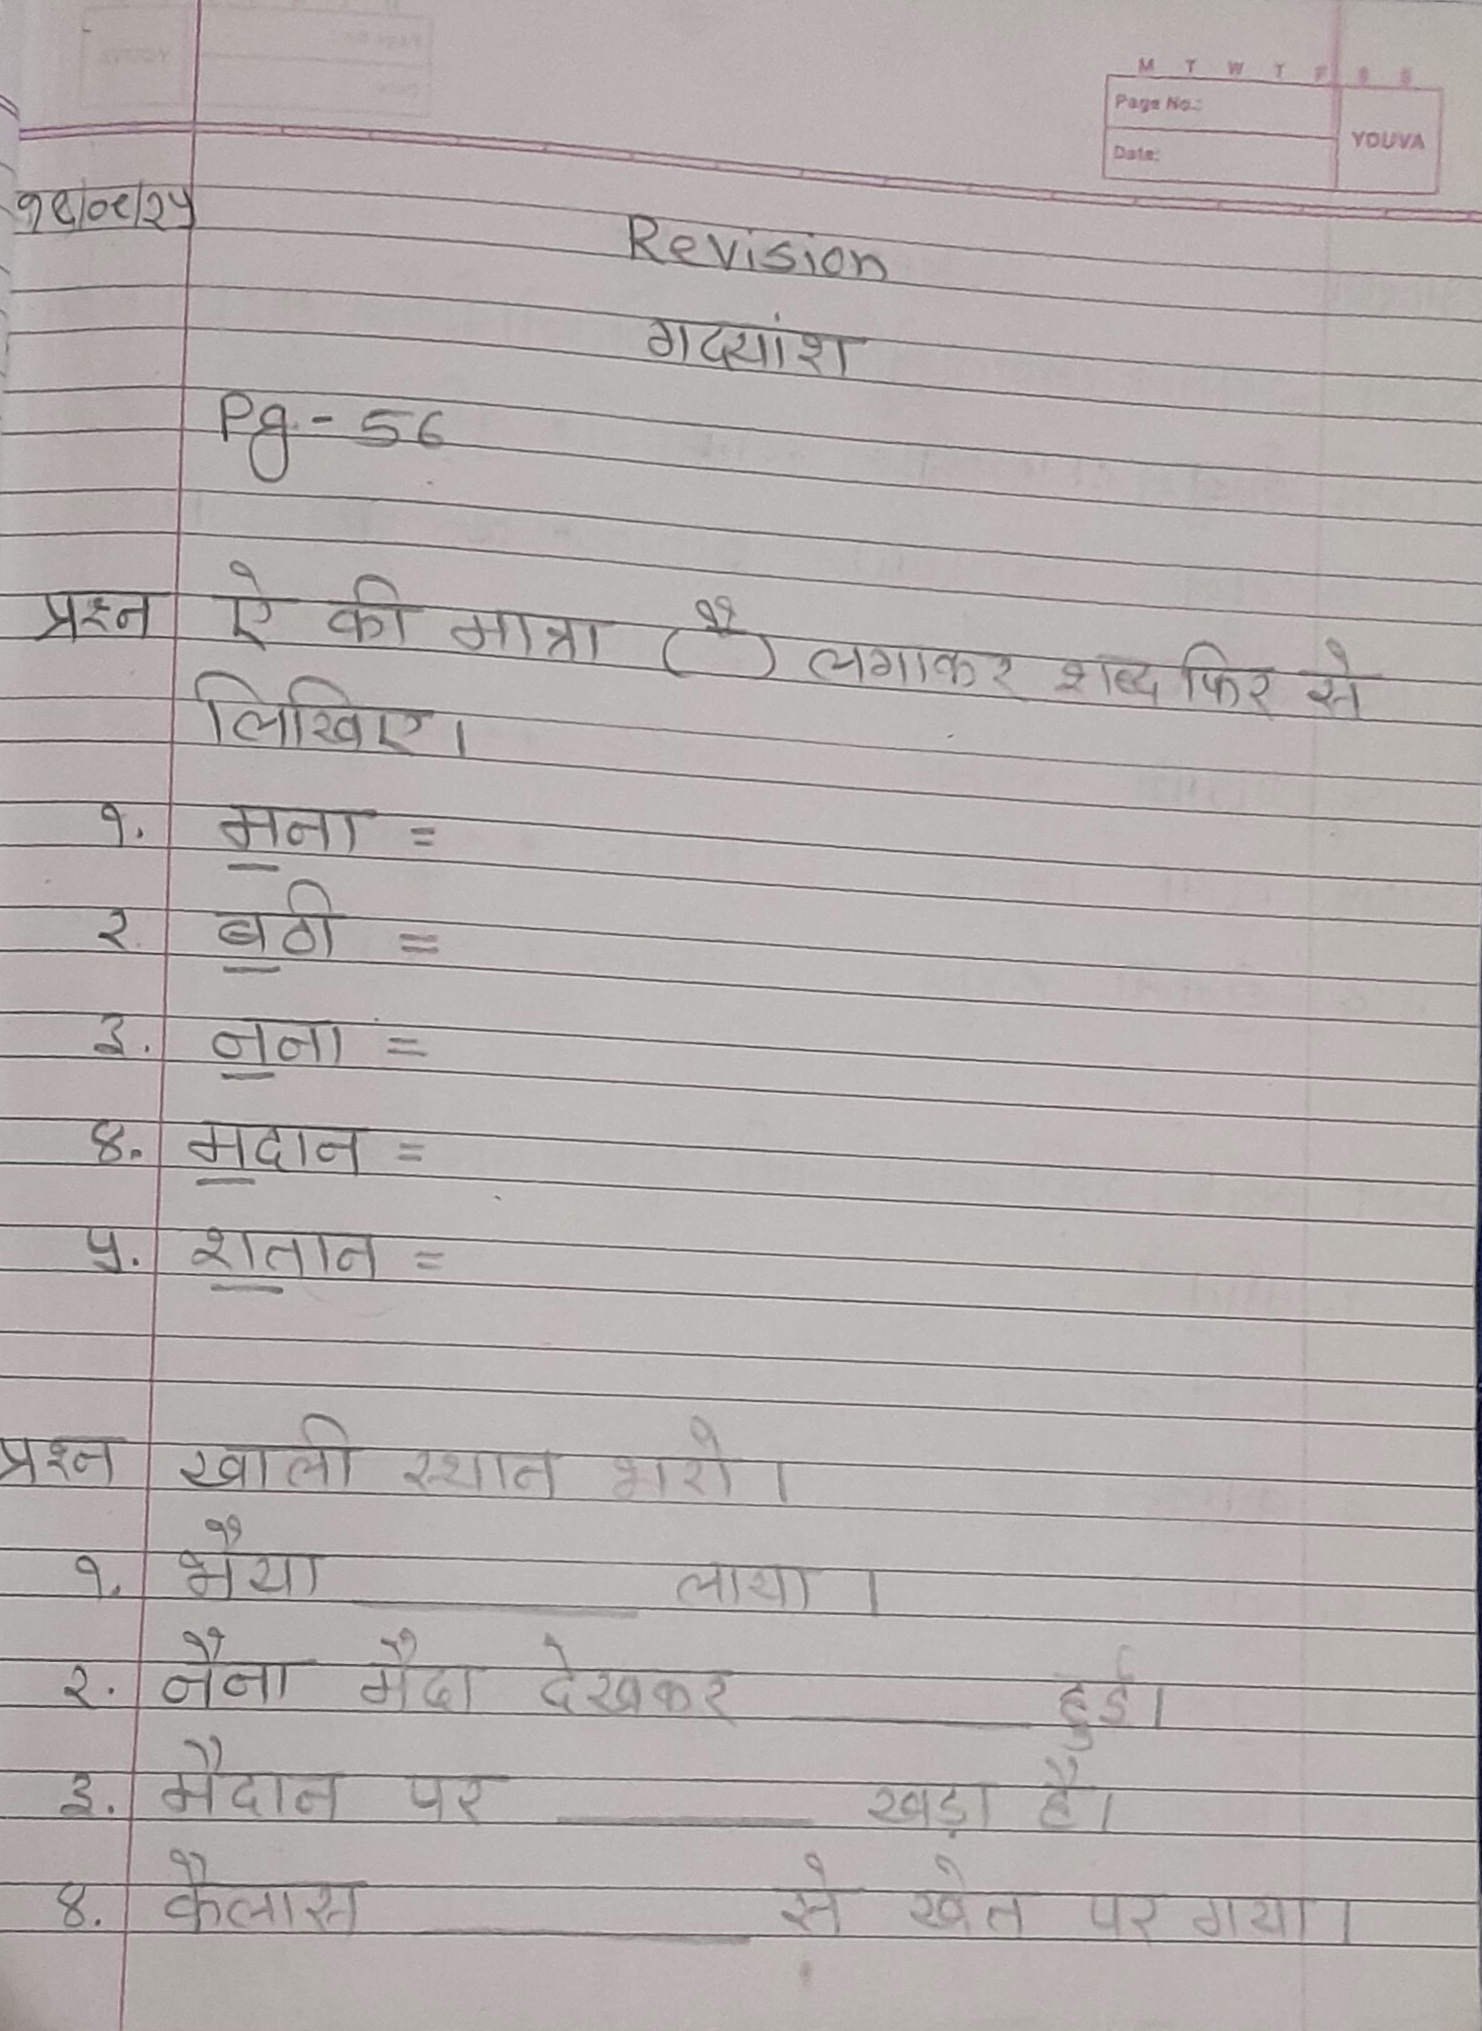 M T W T F S S
Page No.:
YOUVA
Date:
१६/०९/२५
Revision
गद्यांश
Pg.- 56
प्रश्न ऐ की मात्रा ( ै ) लगाकर शब्द फिर से
लिखिए।
१. मना =
२. बठी =
३. नना =
४. मदान =
५. शतान =
प्रश्न खाली स्थान भरो।
१. भैया ______ लाया।
२. नैना मैदा देखकर ______ हुई।
३. मैदान पर ______ खड़ा है।
४. कैलास ______ से खेत पर गया।